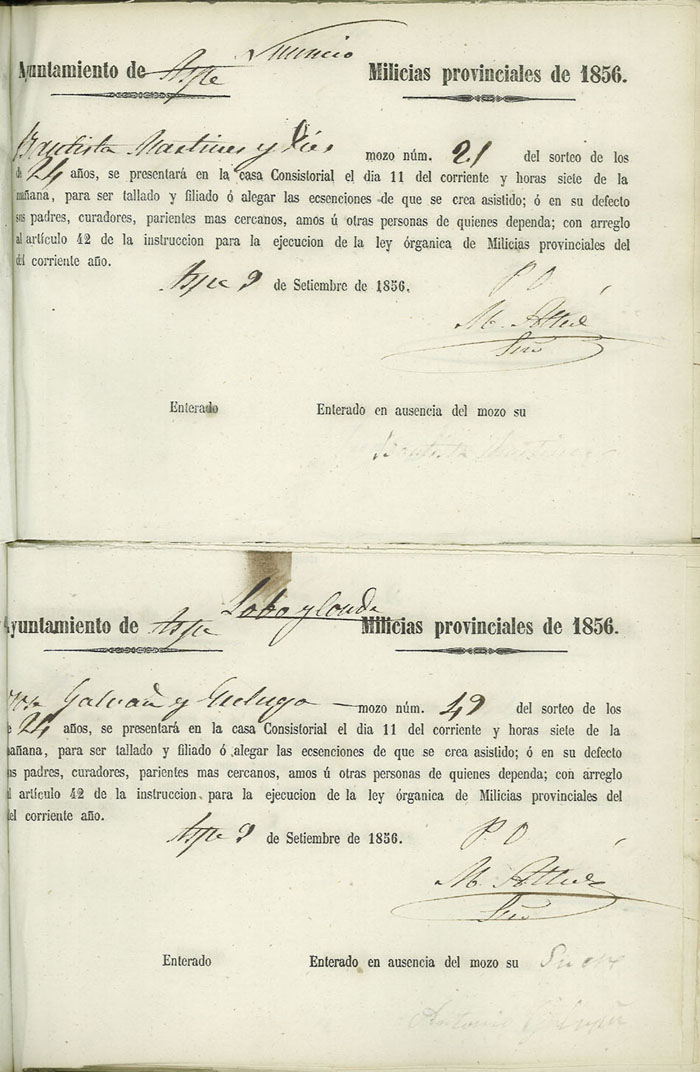 Ayuntamiento de Aspe Milicias provinciales de 1856.
Bautista Martinez y mozo núm. 21 del sorteo de los
de 24 años, se presentará en la casa Consistorial el dia 11 del corriente y horas siete de la
mañana, para ser tallado y filiado ó alegar las ecsenciones de que se crea asistido; ó en su defecto
sus padres, curadores, parientes mas cercanos, amos ú otras personas de quienes dependa; con arreglo
al artículo 42 de la instruccion para la ejecucion de la ley órganica de Milicias provinciales del
del corriente año.
Aspe 9 de Setiembre de 1856.
P O
M.
Enterado Enterado en ausencia del mozo su
Bautista
Lobo y Conde
Ayuntamiento de Aspe Milicias provinciales de 1856.
Galvañ y mozo núm. 49 del sorteo de los
e 24 años, se presentará en la casa Consistorial el dia 11 del corriente y horas siete de la
mañana, para ser tallado y filiado ó alegar las ecsenciones de que se crea asistido; ó en su defecto
us padres, curadores, parientes mas cercanos, amos ú otras personas de quienes dependa; con arreglo
l artículo 42 de la instruccion para la ejecucion de la ley órganica de Milicias provinciales del
del corriente año.
Aspe 9 de Setiembre de 1856.
P. O
M.
Enterado Enterado en ausencia del mozo su
Antonio